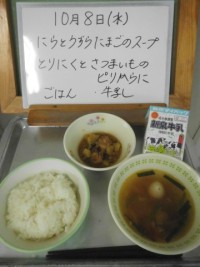 10月8日(水)
にらとうずらたまごのスープ
とりにくとさつまいもの
ピリからに
ごはん ・牛乳
牛乳